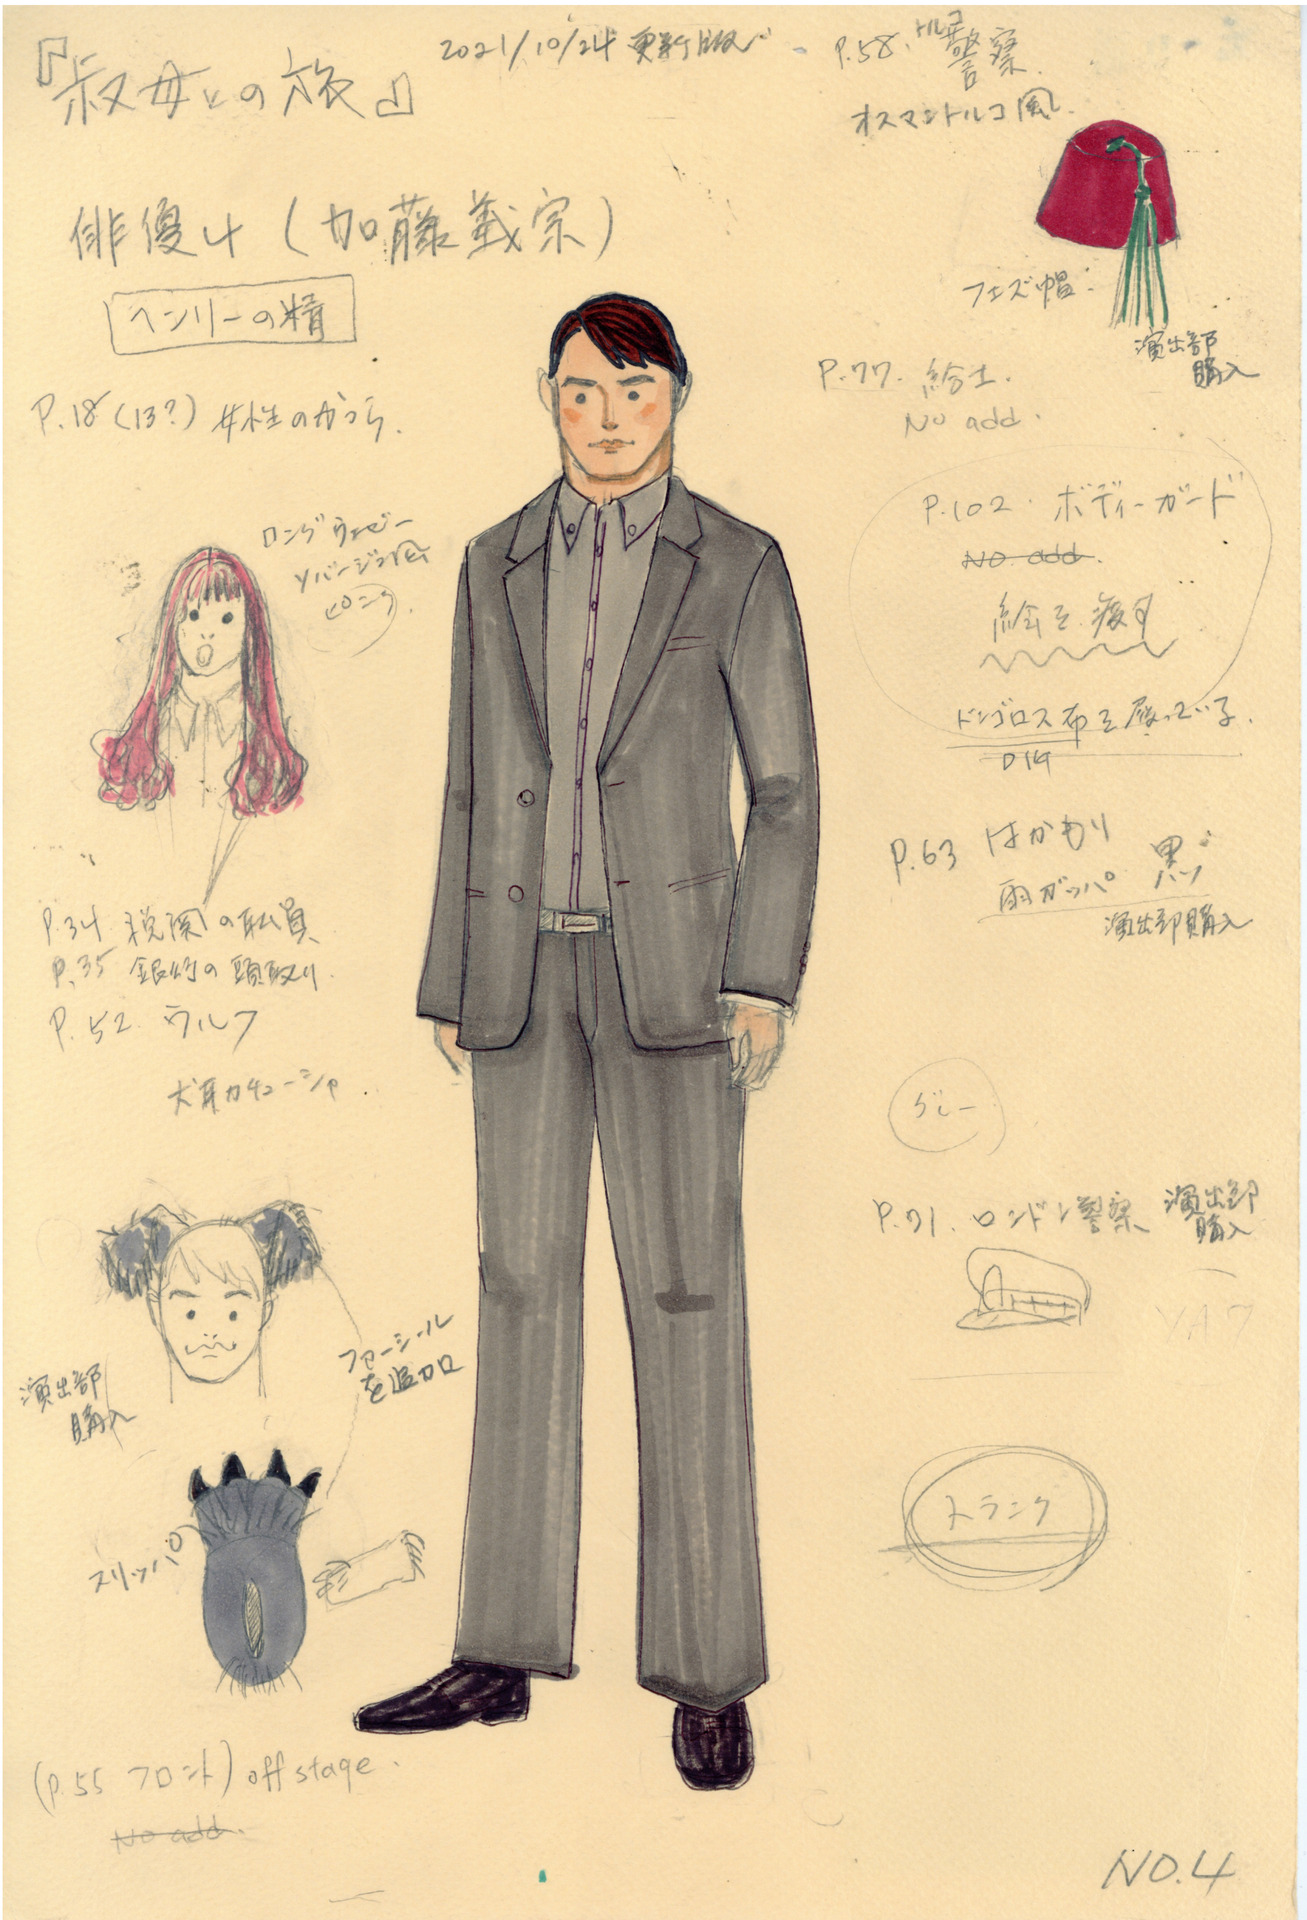 『叔母との旅』
2021/10/24 更新版
俳優4(加藤義宗)
ヘンリーの精
P.18(13?) 女性のかつら.
ロングウェービー
ソバージュ風
ピンク
P.34 税関の職員
P.35 銀行の頭取り.
P.52 ウルフ
犬耳カチューシャ.
演出部
購入
ファーシール
を追加
スリッパ
(P.55 フロント) off stage.
No add.
P.58. トルコ警察
オスマントルコ風.
フェズ帽.
演出部
購入
P.77. 給士.
No add.
P.102. ボディーガード
No add.
絵を
ドンゴロス布を
P.63 はかもり
雨ガッパ 黒
演出部購入
グレー
P.71. ロンドン警察 演出部
購入
トランク
NO.4